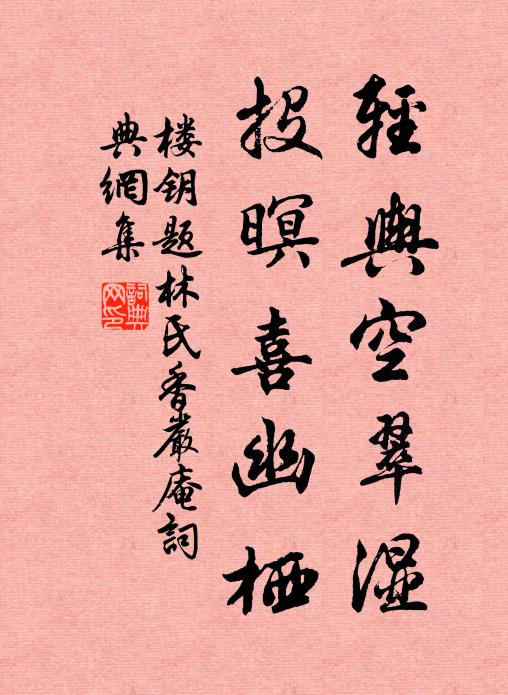 輕輿空翠濕
投暝喜幽栖
楼钥题林氏香嚴庵詞
典網集
詞典
网印